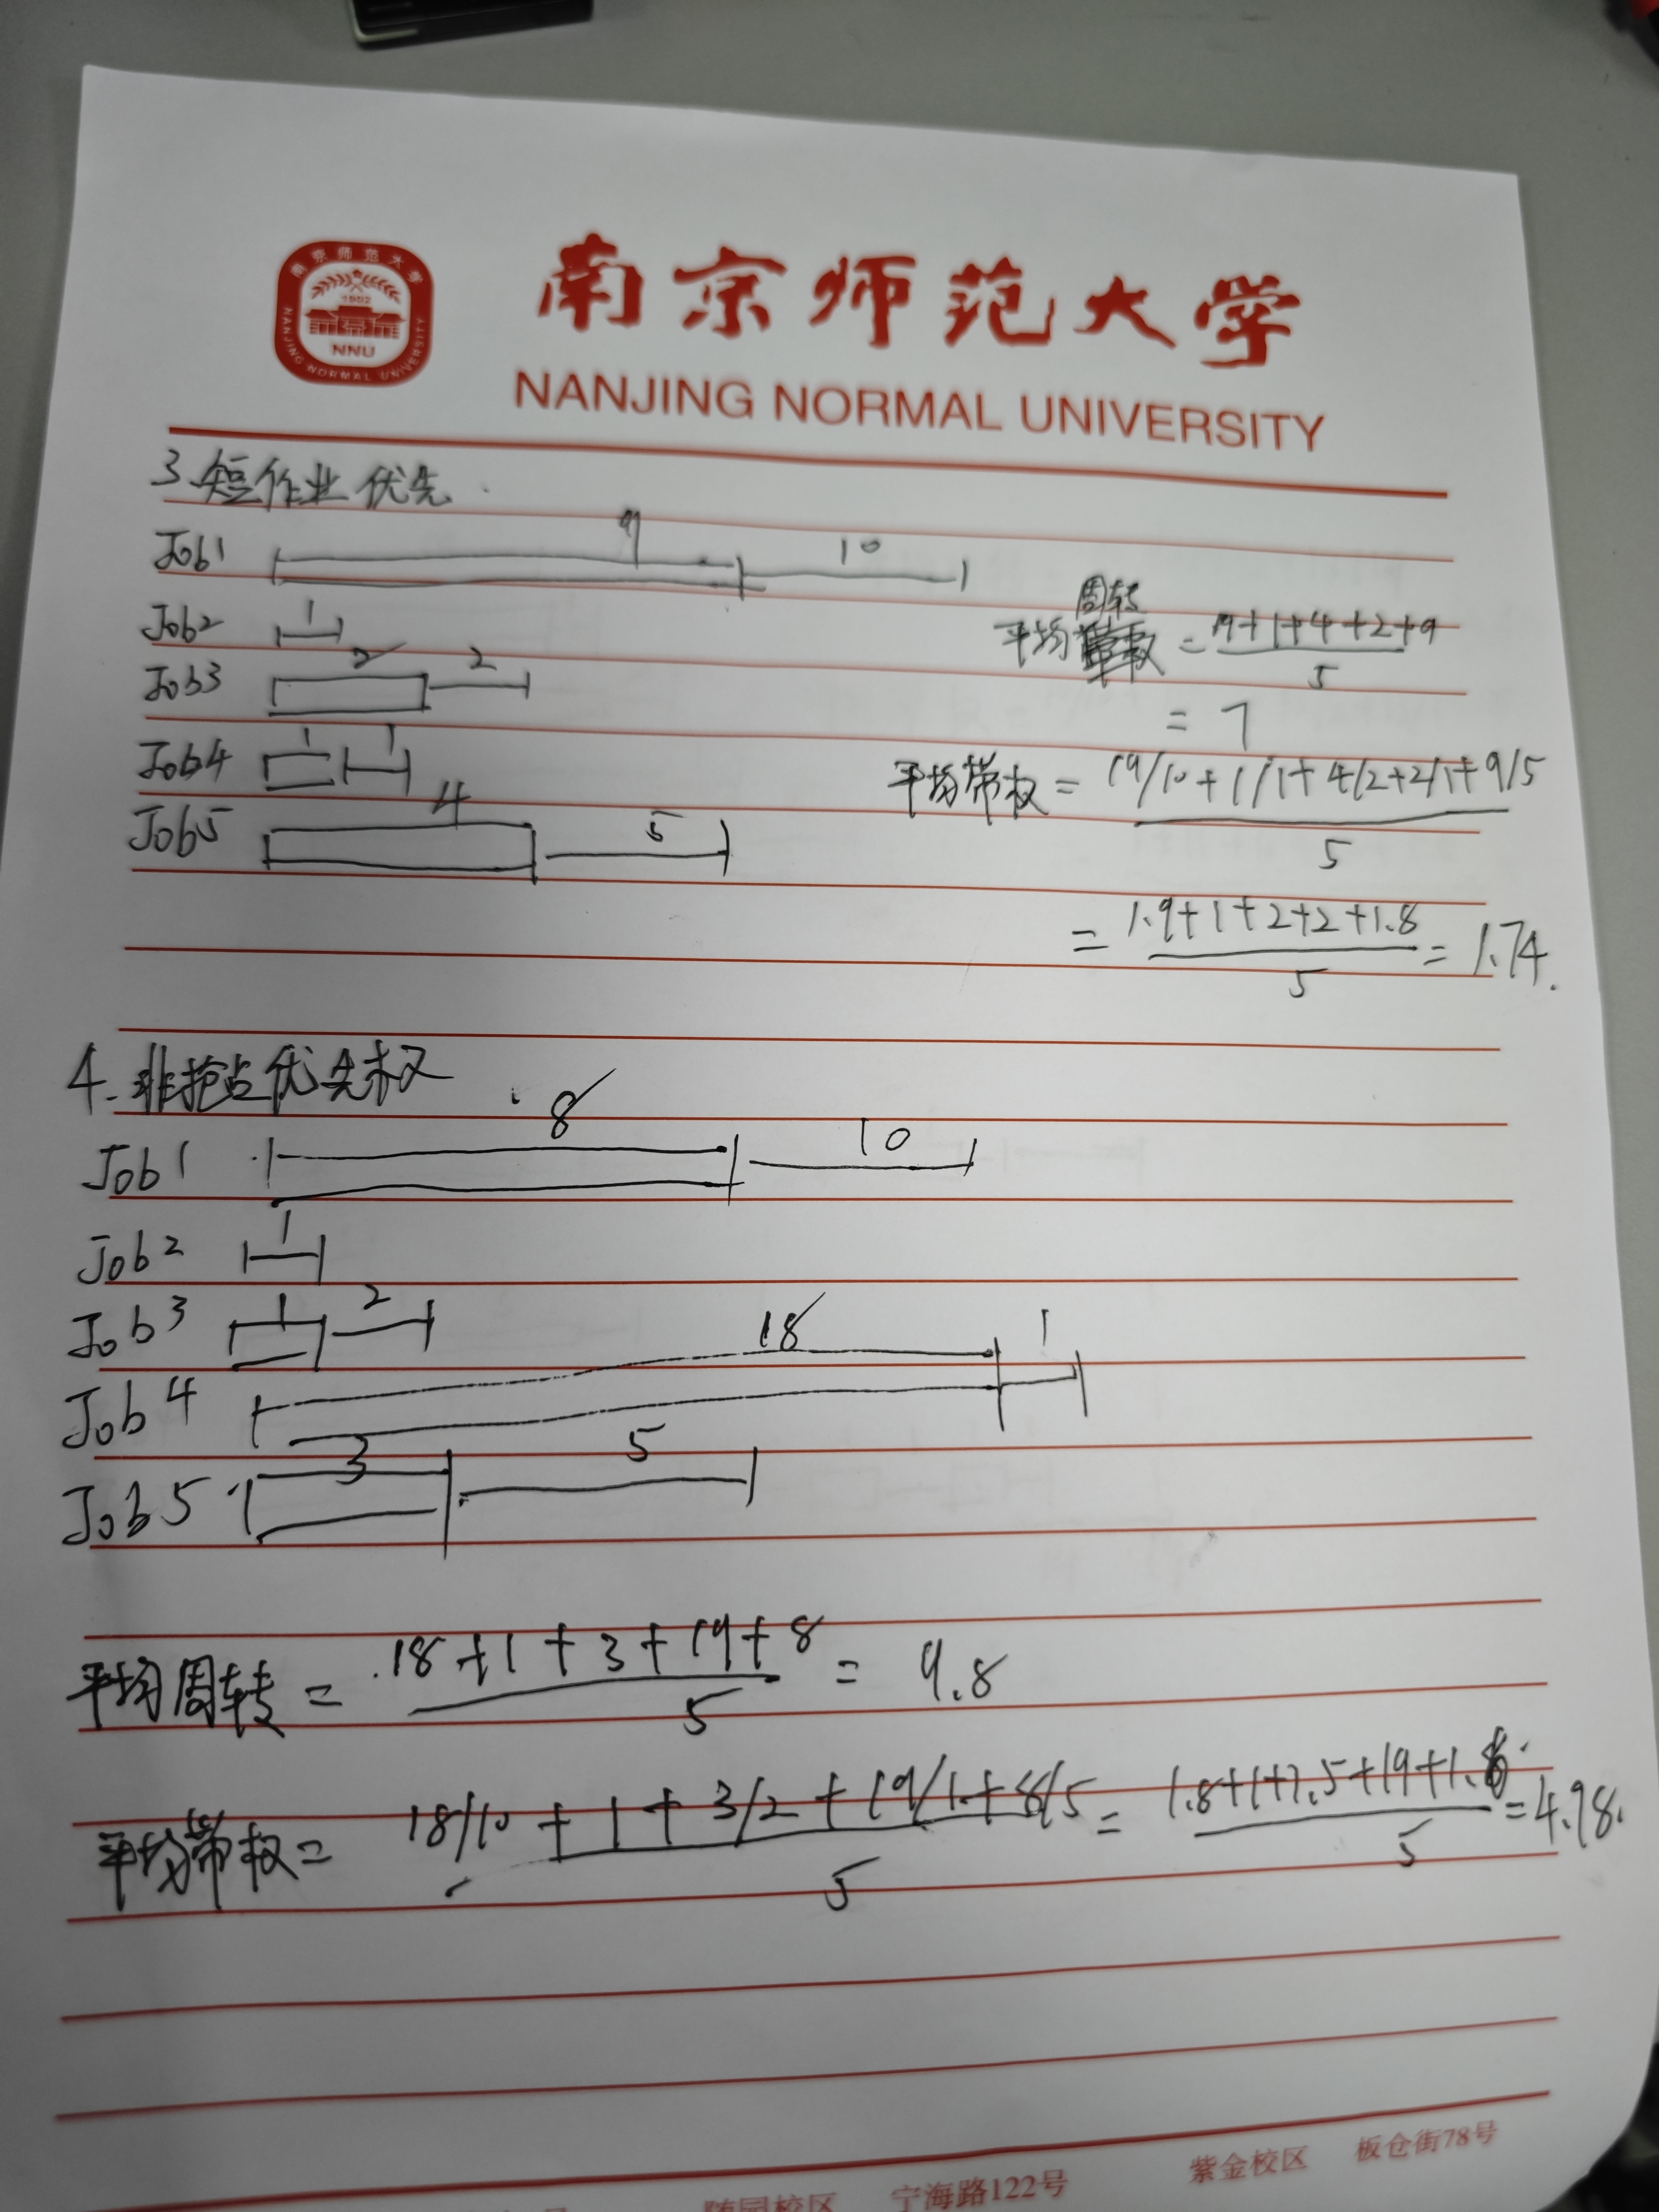 南京师范大学
1902
NNU
NANJING NORMAL UNIVERSITY
南京师范大学
NANJING NORMAL UNIVERSITY
3.短作业优先
Job1 9 10
Job2 1
Job3 2 2
Job4 1 1
Job5 4 5
周转
平均 = 19+1+4+2+9
5
= 7
平均带权 = 19/10+1/1+4/2+2/1+9/5
5
= 1.9+1+2+2+1.8
5
= 1.74.
4.非抢占优先权
Job1 8 10
Job2 1
Job3 1 2
Job4 18 1
Job5 3 5
平均周转 = 18+1+3+19+8
5
= 9.8
平均带权 = 18/10+1+3/2+19/1+8/5
5
= 1.8+1+1.5+19+1.6
5
= 4.98.
随园校区 宁海路122号 紫金校区 板仓街78号